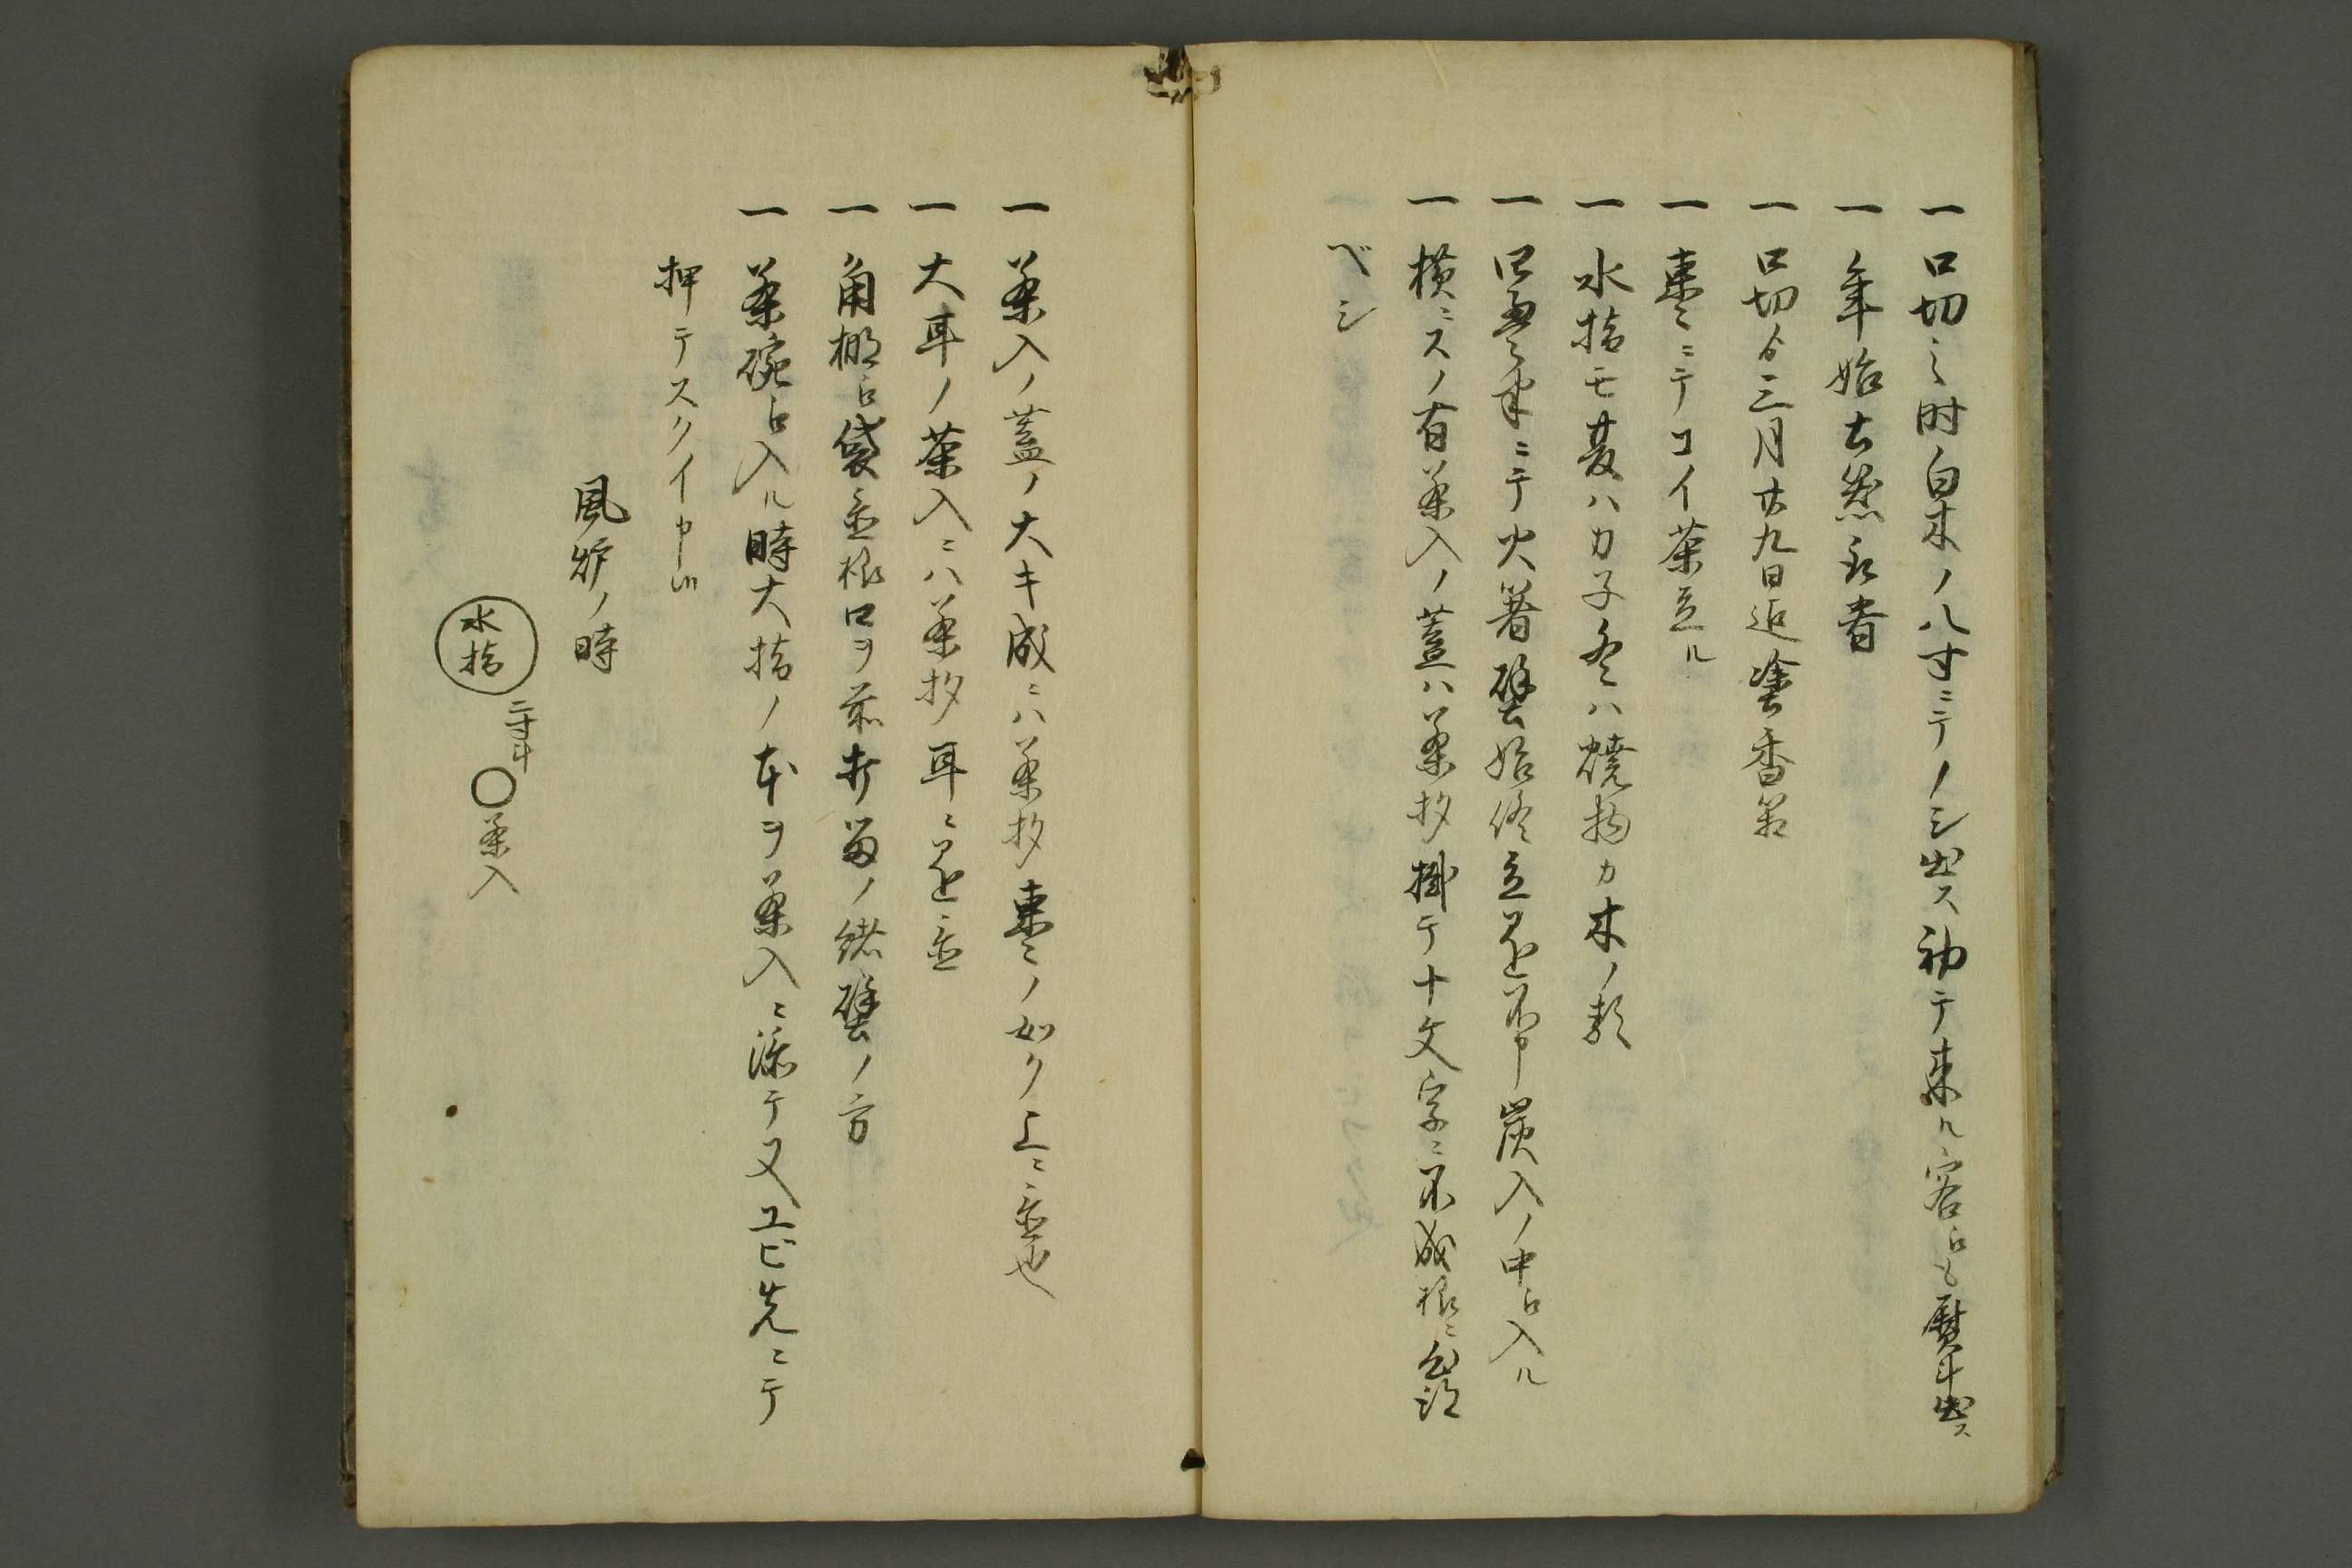 一 口切之時白木ノ八寸ニテノシ出ス初テ来ル客ニも熨斗出ス
一 年始去然永者
一 口切ゟ三月廿九日迄塗香箱
一 棗ニテコイ茶立ル
一 水指モ夏ハカ子冬ハ焼物カ木ノ類
一 ニテ火箸壁始終立置不申炭入ノ中ニ入ル
一 横ニスノ有茶入ノ蓋ハ茶杓掛テ十文字ニ不成様ニ
ベシ
一 茶入ノ蓋ノ大キ成ニハ茶杓棗ノ如ク上ニ置也
一 大耳ノ茶入ニハ茶杓耳ニ置
一 角棚ニ袋置様口ヲ前打留ノ緒壁ノ方
一 茶碗ニ入ル時大指ノ本ヲ茶入ニ添テ又ユビ先ニテ
押テスクイ申候
風炉ノ時
水指
二寸半
茶入